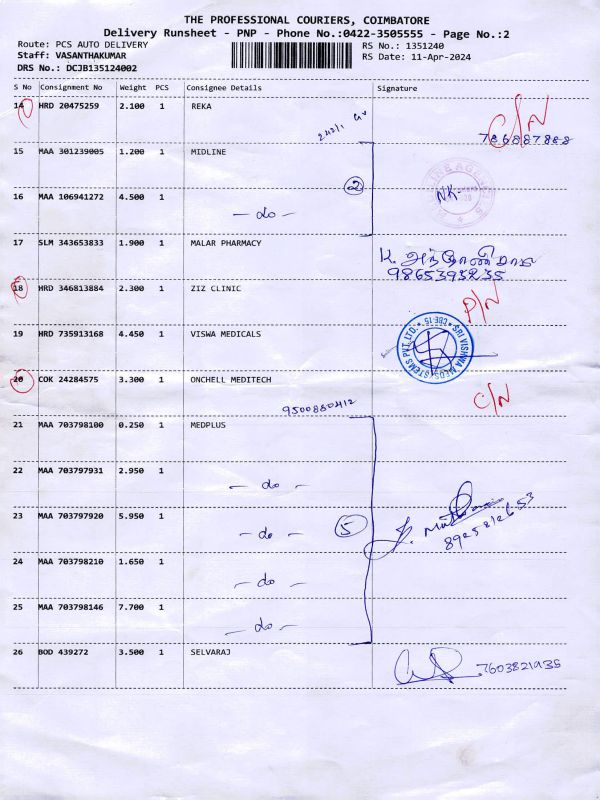 THE PROFESSIONAL COURIERS, COIMBATORE
Delivery Runsheet - PNP - Phone No.:0422-3505555 - Page No.:2
Route: PCS AUTO DELIVERY RS No.: 1351240
Staff: VASANTHAKUMAR RS Date: 11-Apr-2024
DRS No.: DCJB135124002
S No Consignment No Weight PCS Consignee Details Signature
14 HRD 20475259 2.100 1 REKA C/N
15 MAA 301239005 1.200 1 MIDLINE
2
16 MAA 106941272 4.500 1 NK
- do -
17 SLM 343653833 1.900 1 MALAR PHARMACY
9865395235
18 HRD 346813884 2.300 1 ZIZ CLINIC P/N
19 HRD 735913168 4.450 1 VISWA MEDICALS
SRI VISHWA MEDSYSTEMS PVT.LTD. * CBE-15 *
20 COK 24284575 3.300 1 ONCHELL MEDITECH C/N
9500880412
21 MAA 703798100 0.250 1 MEDPLUS
22 MAA 703797931 2.950 1
- do -
23 MAA 703797920 5.950 1
- do - 5
8925812653
24 MAA 703798210 1.650 1
- do -
25 MAA 703798146 7.700 1
- do -
26 BOD 439272 3.500 1 SELVARAJ
7603821935